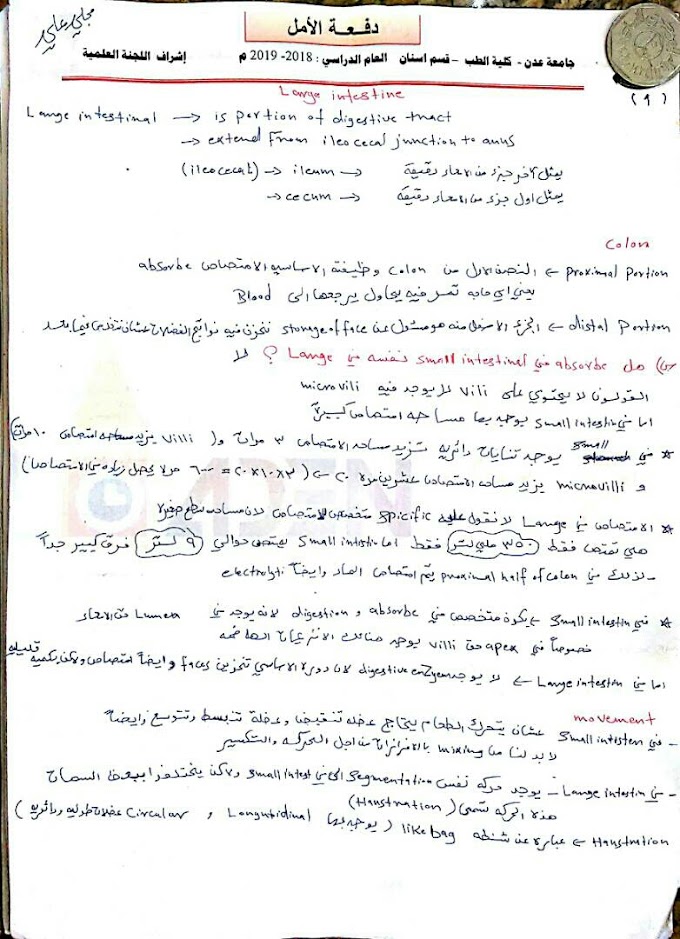 مجلي علي
دفعة الأمل
جامعة عدن - كلية الطب - قسم اسنان العام الدراسي : 2018- 2019 م إشراف اللجنة العلمية
(1)
Large intestine
Large intestinal → is portion of digestive tract
→ extend from ileocecal junction to anus
(ileocecal) → ileum → يمثل آخر جزء من الامعاء دقيقة
→ cecum → يمثل اول جزء من الامعاء دقيقة
Colon
proximal portion ← النصف الاول من colon وظيفته الاساسيه الامتصاص absorbe
يعني اي حاجه تمر فيه يحاول يرجعها الى Blood
distal portion ← الجزء الاسفل منه هو مسئول عن storage of face نخزن فيه نواتج الفضلات عشان
س) هل absorbe في small intestinal نفسه في Large ؟ لا
القولون لا يحتوي على vili لا يوجد فيه microvili
اما في small intestin يوجد بها مساحه امتصاص كبيرة
* في small يوجد ثنايات دائريه تزيد مساحه الامتصاص ٣ مرات و( villi مزيد امتصاص ١٠ مرات)
و microvilli يزيد مساحه الامتصاص عشرين مره ٢٠ ← (٣×١٠×٢٠ = ٦٠٠ مره يحصل زياده في الامتصاص)
* الامتصاص في Large لا نقول عليه spicific متخصص للامتصاص لان مساحه سطح صغيرة
هي تمتص فقط ٣٥٠ ملي لتر فقط اما small intistin يمتص حوالي ٩ لتر فرق كبير جداً
- لذلك في proximal half of colon يتم امتصاص الماء وايضاً electrolyti
* في small intestin يكون متخصص في absorbe و digestion لانه يوجد في Lumen من الامعاء
خصوصاً في apex من villi يوجد هنالك الانزيمات الهاضمه
اما في Large intestin ← لا يوجد digestive enzyem لان دورة الاساسي تخزين faces وايضاً امتصاص ولاكن بكميه قليله
movement
- في small intisten عشان يتحرك الطعام يحتاج عضله تنقبض وعضلة تنبسط وتتوسع وايضاً
لابد لنا من mixing بالافرازات من اجل الحركه والتكسير
- في Large intestin - يوجد حركه نفس segmentation الي في small intest ولاكن يختلف في بعض السمات
هذه الحركه تسمى (Haustration)
- Haustration ← عبارة عن شنطه like bag ( يوجد بها Longitidinal و circular عضلات طوليه ودائريه )